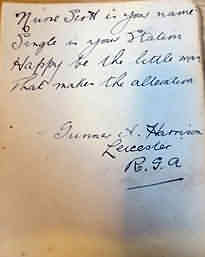 Nurse Scott is your name
Single is your Station
Happy be the little man
That makes the alteration
Gunner H. Harrison
Leicester
R.G.A